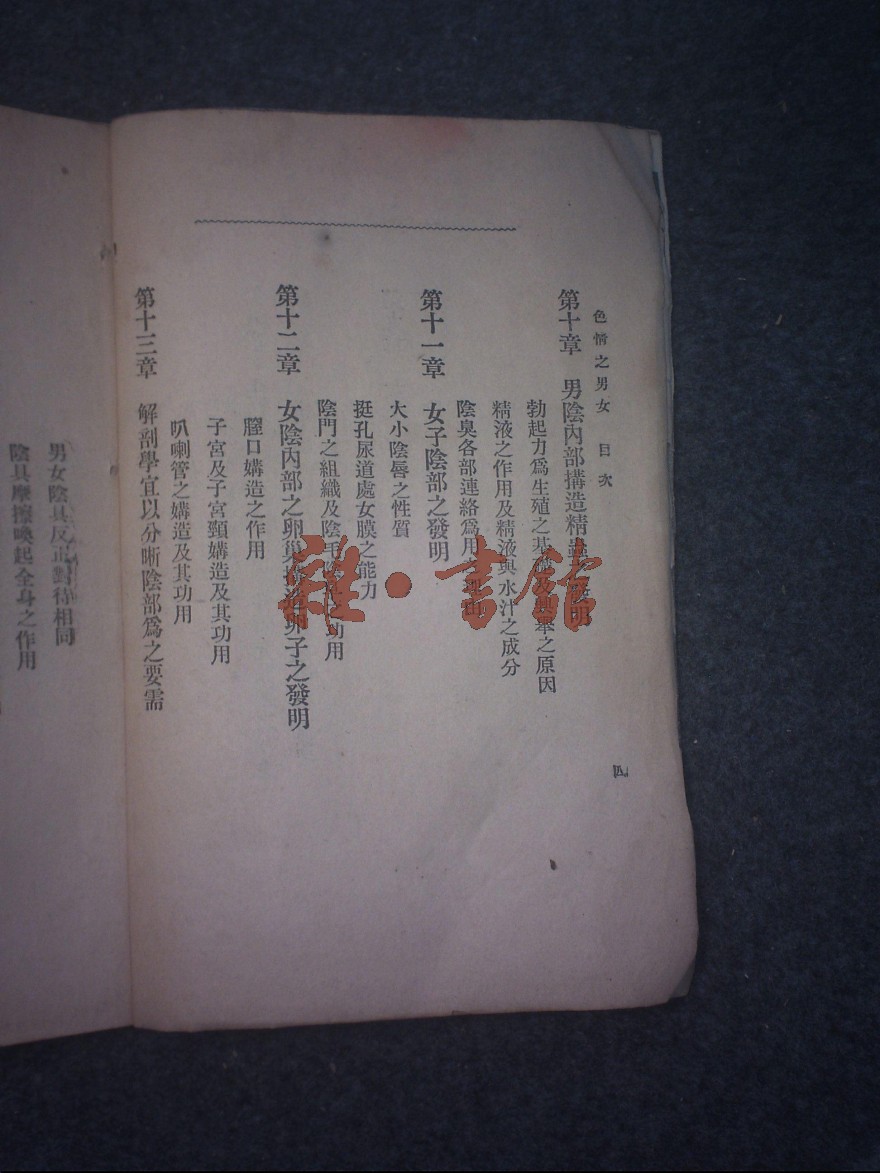 色情之男女 目次
第十章 男陰內部搆造精蟲之發明
勃起力爲生殖之基礎及興舉之原因
精液之作用及精液與水汁之成分
陰臭各部連絡爲用之理由
第十一章 女子陰部之發明
大小陰唇之性質
挺孔尿道處女膜之能力
陰門之組織及陰毛陰之功用
第十二章 女陰內部之卵巢搆造卵子之發明
膣口媾造之作用
子宮及子宮頸媾造及其功用
叭喇管之媾造及其功用
第十三章 解剖學宜以分晰陰部爲之要需
四
男女陰具反正對待相同
陰具摩擦喚起全身之作用
雜·書館